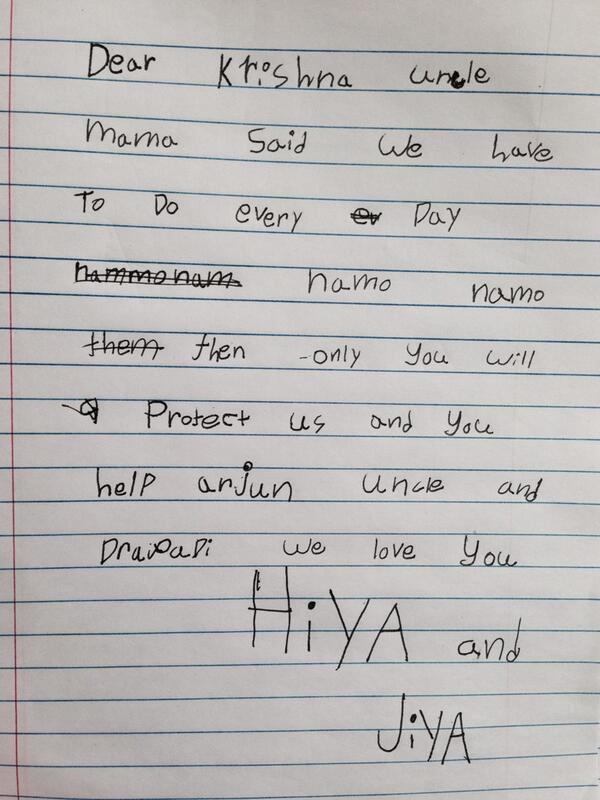 Dear Krishna uncle
Mama Said We have
To Do every ev Day
nammo nam namo namo
them then only you will
Protect us and you
help arjun uncle and
DraupaDi we love you
HiYA and
JiYA